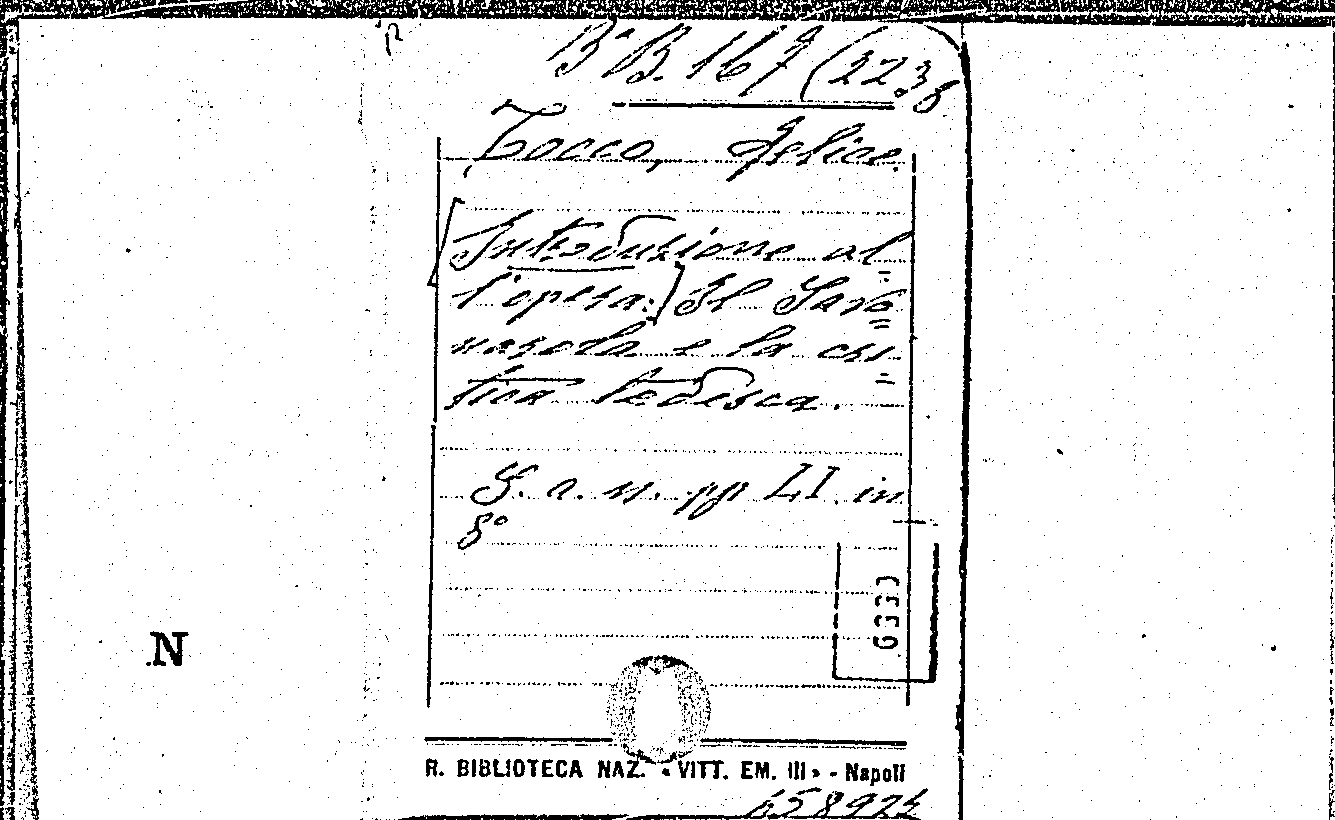 B.B. 167 (223
Tocco, Felice.
[Introduzione al=
l'opera:] Il Savo=
narola e la cri=
tica tedesca.
S. a. n. pp LI in
8°
6333
N
R. BIBLIOTECA NAZ. « VITT. EM. III » - Napoli